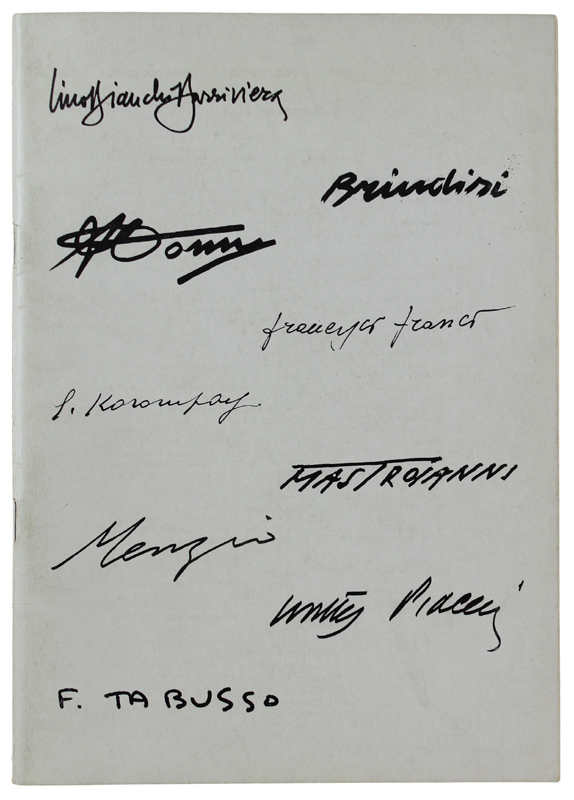 Lino Bianchi Barriviera
Brindisi
francesco franco
G. Korompay
MASTROIANNI
Menzio
Walter Piacesi
F. TABUSSO